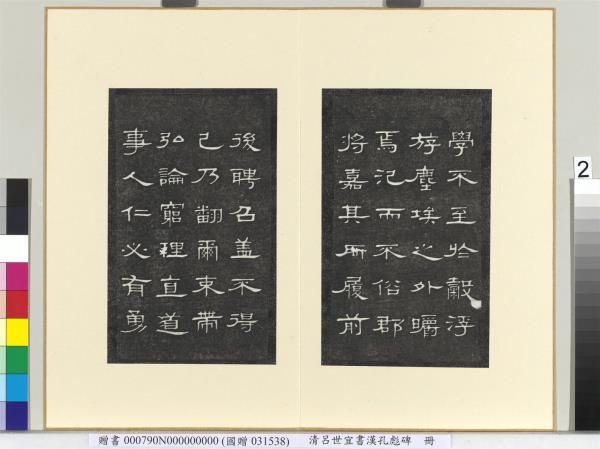 學不至於穀浮
斿塵埃之外矚
焉氾而不俗郡
將嘉其所履前
後聘召盖不得
已乃翻爾束帶
弘論窮理直道
事人仁必有勇
2
贈書 000790N000000000 (國贈 031538) 清呂世宜書漢孔彪碑 冊